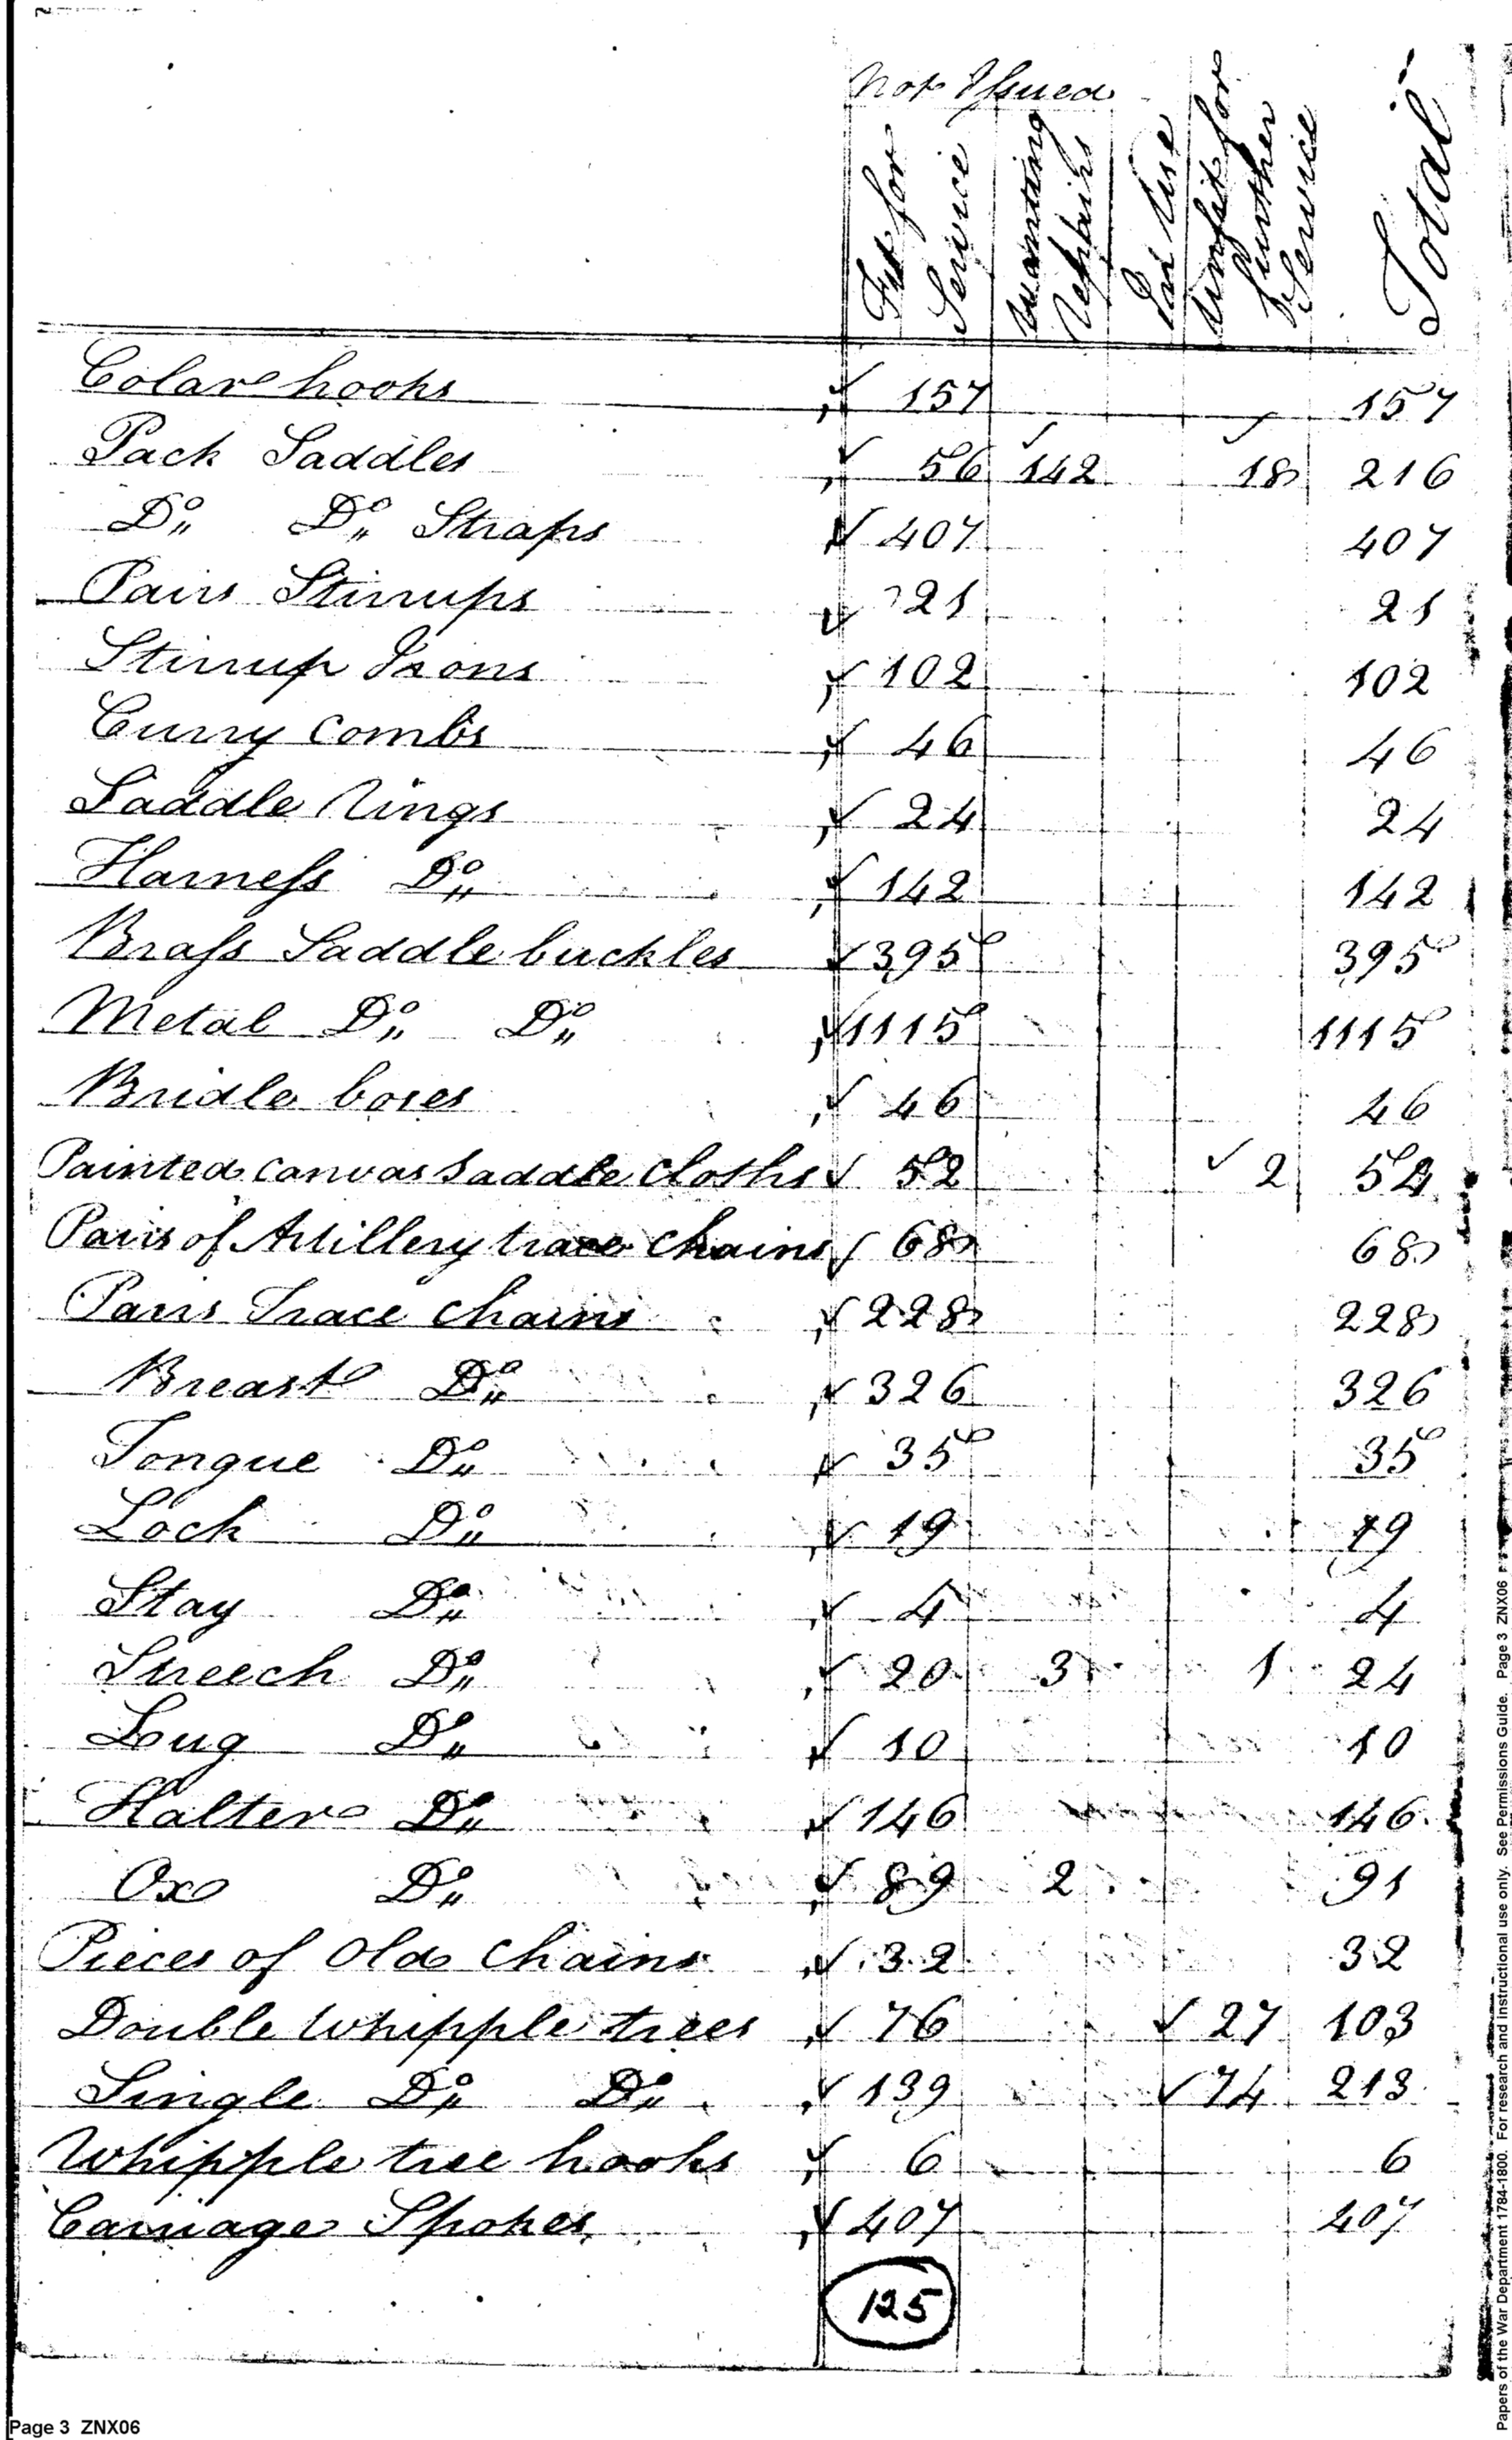 Not Issued
Fit for Service | Wanting Repairs | In Use | Unfit for Further Service | Total
Colar hooks 157 157
Pack Saddles 56 142 18 216
Do Do Straps 407 407
Pairs Stirrups 21 21
Stirrup Irons 102 102
Curry Combs 46 46
Saddle Rings 24 24
Harness Do 142 142
Brass Saddle buckles 395 395
Metal Do Do 1115 1115
Bridle boses 46 46
Painted canvas Saddle Cloths 52 2 54
Pairs of Artillery trace Chains 68 68
Pairs Trace Chains 228 228
Breast Do 326 326
Tongue Do 35 35
Lock Do 19 19
Stay Do 4 4
Streech Do 20 3 1 24
Lug Do 10 10
Halter Do 146 146
Ox Do 89 2 91
Pieces of Old Chains 32 32
Double Whipple trees 76 27 103
Single Do Do 139 74 213
Whipple tree hooks 6 6
Carriage Spokes 407 407
125
Page 3 ZNX06
Papers of the War Department 1784-1800. For research and instructional use only. See Permissions Guide. Page 3 ZNX06